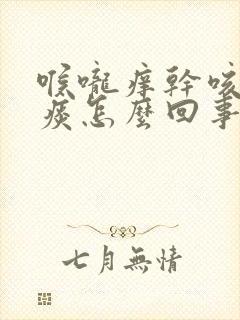 喉嚨痒幹咳
痰怎麼回事
七月無情